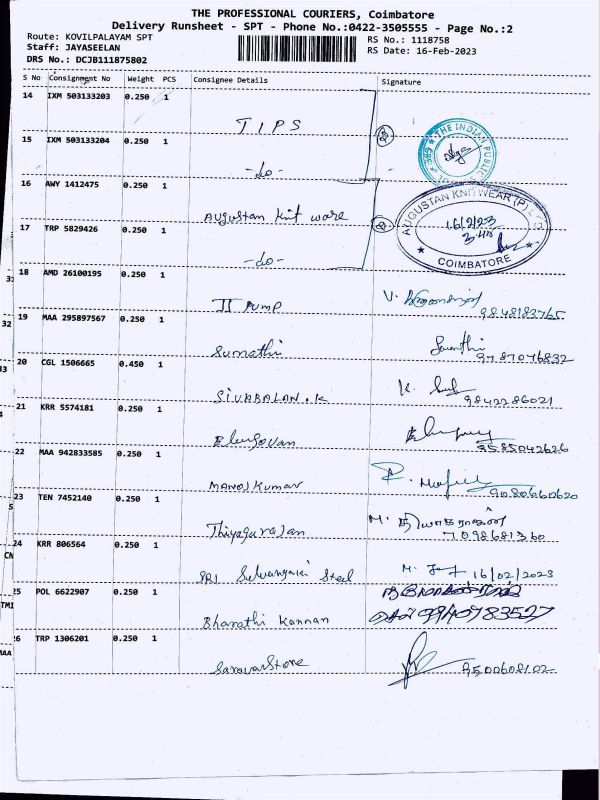 THE PROFESSIONAL COURIERS, Coimbatore
Delivery Runsheet - SPT - Phone No.:0422-3505555 - Page No.:2
Route: KOVILPALAYAM SPT
RS No.: 1118758
Staff: JAYASEELAN
RS Date: 16-Feb-2023
DRS No.: DCJB111875802
S No Consignment No Weight PCS Consignee Details Signature
14 IXM 503133203 0.250 1
TIPS
THE INDIAN PUBLIC
15 IXM 503133204 0.250 1
-do-
16 AWY 1412475 0.250 1
Augustan Knit ware
AUGUSTAN KNIT WEAR (P) L
16/2/23
COIMBATORE
17 TRP 5829426 0.250 1
-do-
18 AMD 26100195 0.250 1
II PUMP
V.
9848183765
19 MAA 295897567 0.250 1
Sumathi
9787076832
20 CGL 1506665 0.450 1
SIVABALAN.K
K.
9842286021
21 KRR 5574181 0.250 1
Elangovan
9585042626
22 MAA 942833585 0.250 1
MANOJ Kumar
9080660620
23 TEN 7452140 0.250 1
Thiyagarajan
M. தியாகராஜன்
7098681360
24 KRR 806564 0.250 1
SRI Selvanayaki Steel
M. 16/02/2023
25 POL 6622907 0.250 1
Bharathi Kannan
9940783527
26 TRP 1306201 0.250 1
Saravan Store
9500608102